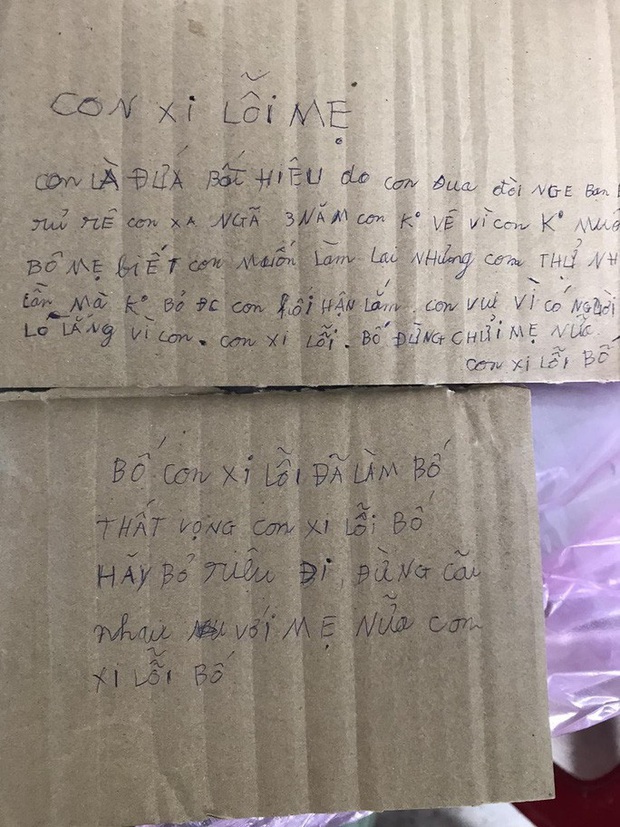 CON XI LỖI MẸ
con LÀ ĐỨA BẤT HIẾU do con Đua đòi NGE Bạn
rủ rê con XA NGÃ 3 NĂM con K° VỀ vì con K°
BỐ MẸ biẾT con muốn Làm Lai NHưng con THỬ NH
Lần MÀ K° BỎ ĐC con hối HẬN LẮM con vui vì có NGƯỜI
LO LẮNG vì con. con XI LỖI. BỐ ĐỪNG CHỬI MẸ NỮA
con XI LỖI BỐ
BỐ CON XI LỖI ĐÃ LÀM BỐ
THẤT VỌNG CON XI LỖI BỐ
HÃY BỎ riệu Đi, ĐỪNG CÃI
nhau với MẸ NỮA con
XI LỖI BỐ